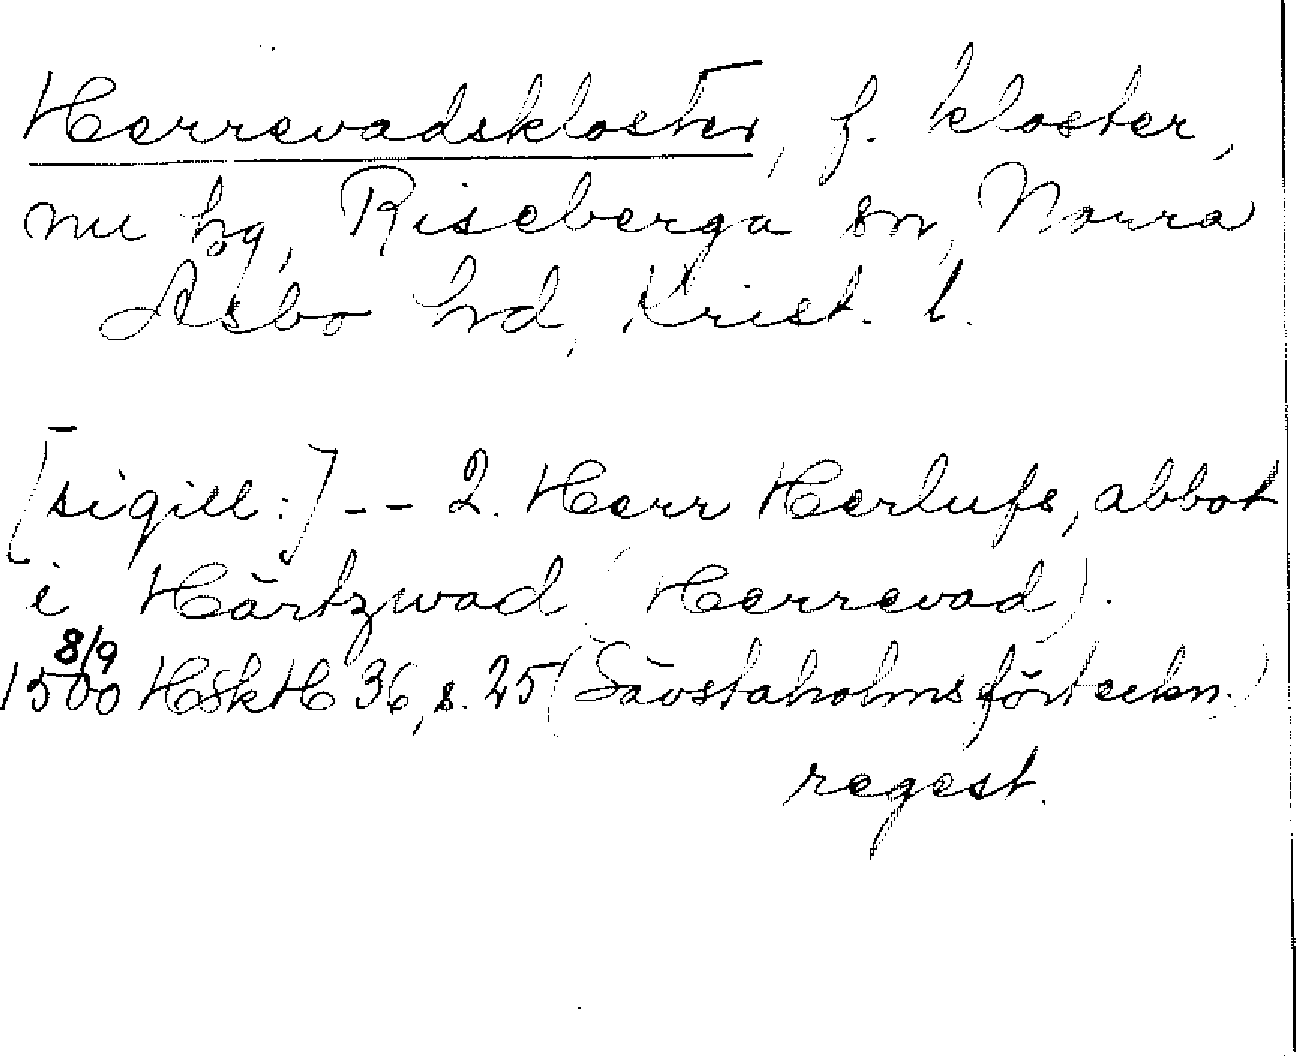 Herrevadskloster, f. kloster,
nu hg, Riseberga sn, Norra
Åsbo hd, Krist. l.
[sigill:] -- 2. Herr Herlufs, abbot
i Härtzwad (Herrevad).
8/9
1500 HSkH 36, s. 25 (Sävstaholmsförteckn.)
regest.